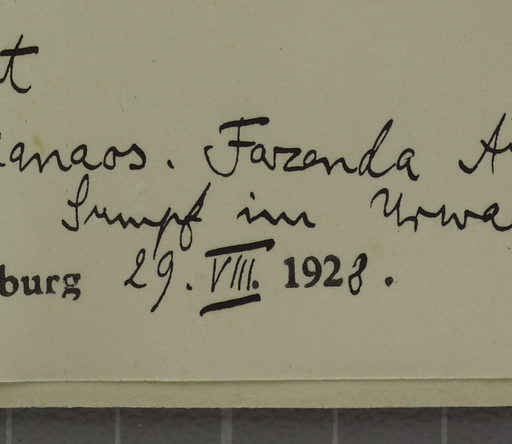 t
anaos. Fazenda A
Sumpf im Urwa
burg 29. VIII. 1928.